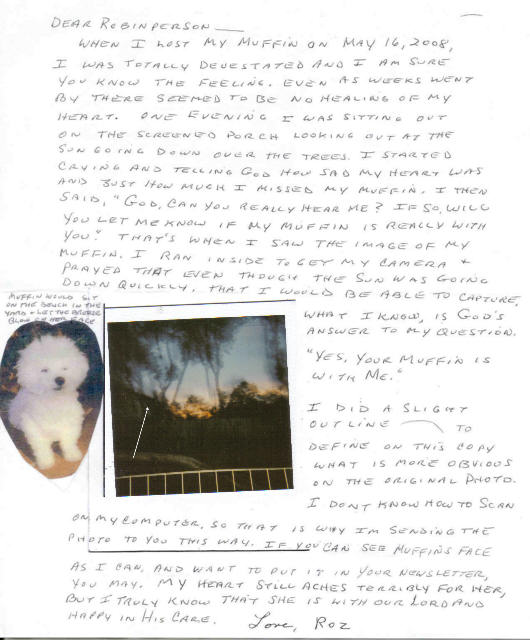 DEAR ROBINPERSON
WHEN I LOST MY MUFFIN ON MAY 16, 2008,
I WAS TOTALLY DEVESTATED AND I AM SURE
YOU KNOW THE FEELING. EVEN AS WEEKS WENT
BY THERE SEEMED TO BE NO HEALING OF MY
HEART. ONE EVENING I WAS SITTING OUT
ON THE SCREENED PORCH LOOKING OUT AT THE
SUN GOING DOWN OVER THE TREES. I STARTED
CRYING AND TELLING GOD HOW SAD MY HEART WAS
AND JUST HOW MUCH I MISSED MY MUFFIN. I THEN
SAID, "GOD, CAN YOU REALLY HEAR ME? IF SO, WILL
YOU LET ME KNOW IF MY MUFFIN IS REALLY WITH
YOU." THAT'S WHEN I SAW THE IMAGE OF MY
MUFFIN. I RAN INSIDE TO GET MY CAMERA +
PRAYED THAT EVEN THOUGH THE SUN WAS GOING
DOWN QUICKLY, THAT I WOULD BE ABLE TO CAPTURE,
MUFFIN WOULD SIT
ON THE BENCH IN THE
YARD + LET THE BREEZE
BLOW ON HER FACE
WHAT I KNOW, IS GOD'S
ANSWER TO MY QUESTION.
"YES, YOUR MUFFIN IS
WITH ME."
I DID A SLIGHT
OUTLINE TO
DEFINE ON THIS COPY
WHAT IS MORE OBVIOUS
ON THE ORIGINAL PHOTO.
I DON'T KNOW HOW TO SCAN
ON MY COMPUTER, SO THAT IS WHY I'M SENDING THE
PHOTO TO YOU THIS WAY. IF YOU CAN SEE MUFFINS FACE
AS I CAN, AND WANT TO PUT IT IN YOUR NEWSLETTER,
YOU MAY. MY HEART STILL ACHES TERRIBLY FOR HER,
BUT I TRULY KNOW THAT SHE IS WITH OUR LORD AND
HAPPY IN HIS CARE. Love, Roz